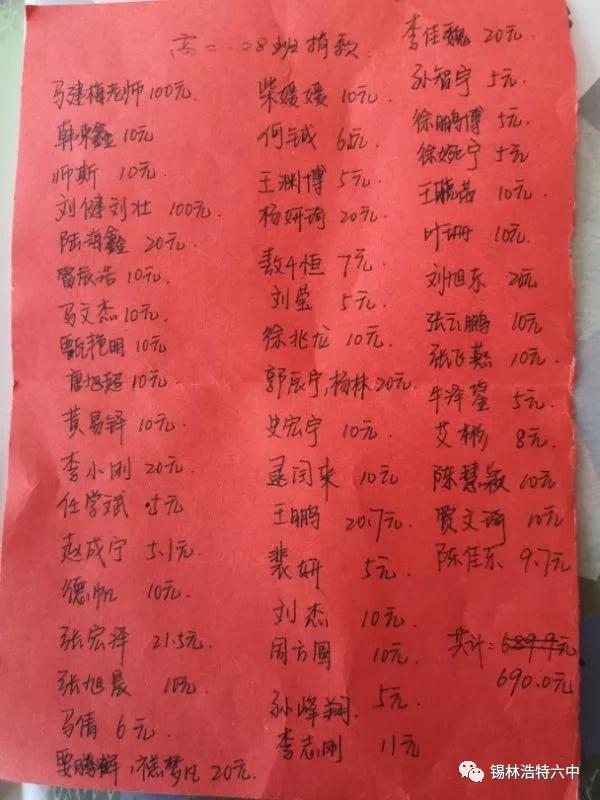 高二.28班捐款
马建梅老师100元.
韩东鑫10元
师斯 10元.
刘健刘壮 100元.
陆海鑫 20元.
雷辰浩10元.
马文杰10元.
甄艳明10元.
唐旭超10元.
黄易铎 10元.
李小刚 20元.
任学斌 .5元
赵成宁 5.1元.
德帆 10元.
张宏泽 21.5元.
张旭晨 10元.
马倩 6元.
要腾辉, 梦凡 20元.
柴媛媛 10元.
何 诚 6元.
王渊博 5元.
杨妍琦 20元.
敖千恒 7元.
刘莹 5元.
徐兆龙 10元.
郭辰宁,杨林20元.
史宏宁 10元.
孟闰来 10元
王鹏 20.7元.
裴妍 5元.
刘杰 10元.
周方圆 10元.
孙峰翔. 5元.
李志刚 11元
李佳巍 20元.
孙智宁 5元.
徐鹏博 5元.
徐婉宁 5元
王毓茜 10元.
叶珊 10元.
刘旭东 20元
张云鹏 10元
张飞燕 10元.
牛泽鋆 5元.
艾彬 8元.
陈慧颖 10元
贾文琦 10元
陈佳东 9.7元
共计: 689.9元
690.0元
锡林浩特六中